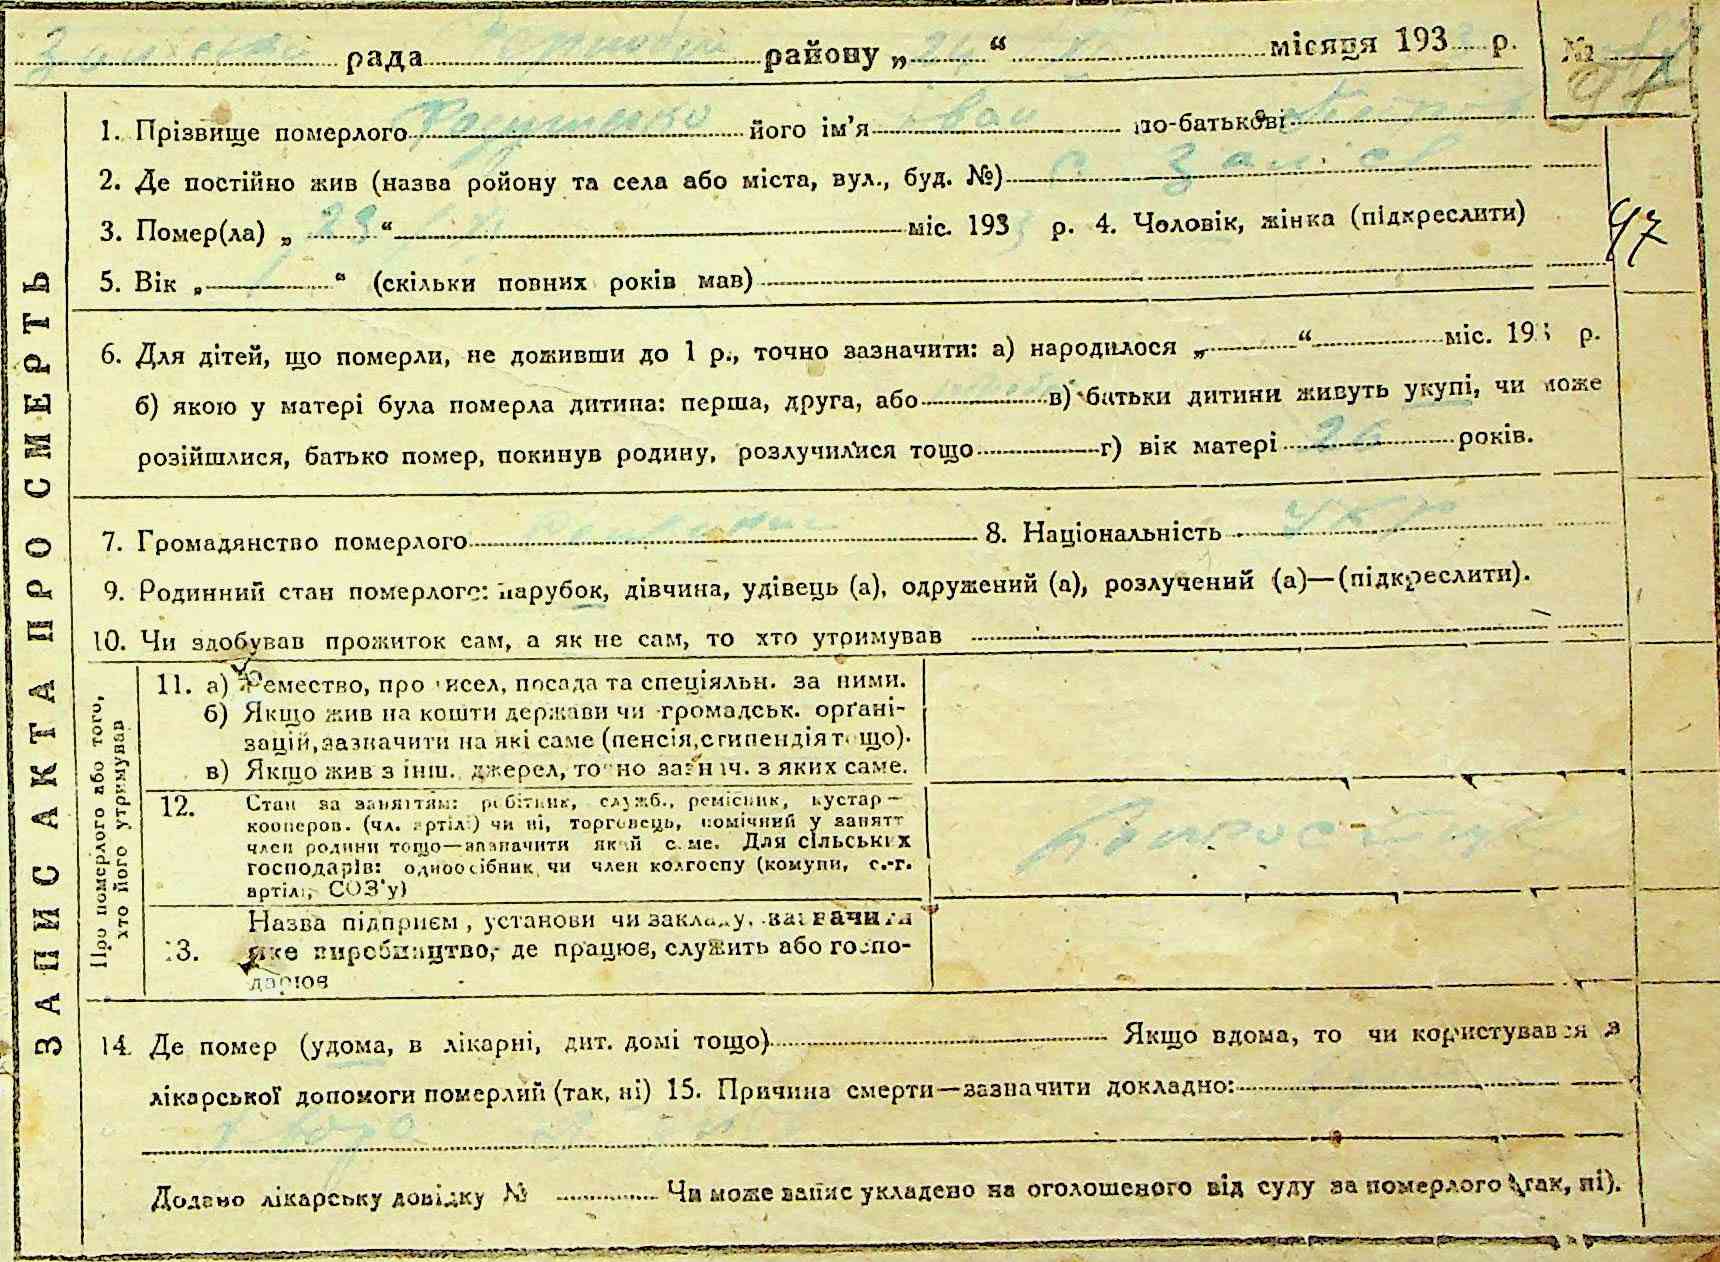 рада району „24“ місяця 1933 р. №
1. Прізвище померлого його ім'я Іван по-батькові
2. Де постійно жив (назва ройону та села або міста, вул., буд. №) с. Заліссє
3. Помер(ла) „23“ міс. 1933 р. 4. Чоловік, жінка (підкреслити)
47
5. Вік „1“ (скільки повних років мав)
6. Для дітей, що померли, не доживши до 1 р., точно зазначити: а) народилося „ “ міс. 193 р.
б) якою у матері була померла дитина: перша, друга, або в) батьки дитини живуть укупі, чи може
розійшлися, батько помер, покинув родину, розлучилися тощо г) вік матері 26 років.
7. Громадянство померлого 8. Національність укр
9. Родинний стан померлого: парубок, дівчина, удівець (а), одружений (а), розлучений (а)—(підкреслити).
10. Чи здобував прожиток сам, а як не сам, то хто утримував
ЗАПИС АКТА ПРО СМЕРТЬ
Про померлого або того,
хто його утримував
11. а) Ремество, промисел, посада та спеціяльн. за ними.
б) Якщо жив на кошти держави чи громадськ. орґані-
зацій, зазначити на які саме (пенсія, стипендія тощо).
в) Якщо жив з інш. джерел, точно зазнач. з яких саме.
12. Стан за заняттям: робітник, служб., ремісник, кустар—
кооперов. (чл. артілі) чи ні, торговець, помічний у занятт
член родини тощо—зазначити який саме. Для сільських
господарів: одноосібник, чи член колгоспу (комуни, с.-г.
артілі, СОЗ'у)
13. Назва підприєм, установи чи закладу, зазначити
яке виробництво, де працює, служить або госпо-
дарює
14. Де помер (удома, в лікарні, дит. домі тощо) Якщо вдома, то чи користувався з
лікарської допомоги померлий (так, ні) 15. Причина смерти—зазначити докладно:
Додано лікарську довідку № Чи може запис укладено на оголошеного від суду за померлого (так, ні).